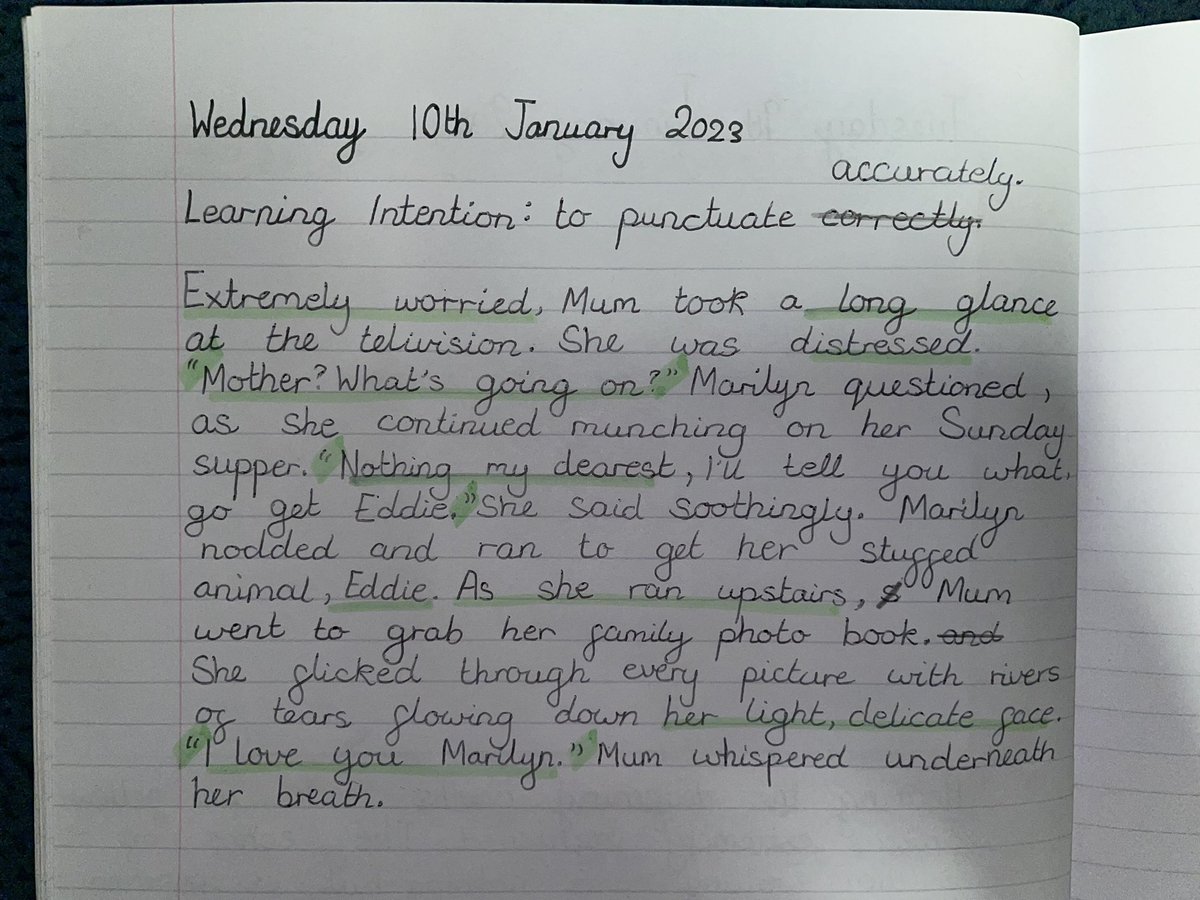 Wednesday 10th January 2023
accurately.
Learning Intention: to punctuate correctly.
Extremely worried, Mum took a long glance
at the telivision. She was distressed.
"Mother? What's going on?" Marilyn questioned,
as she continued munching on her Sunday
supper. "Nothing my dearest, I'll tell you what,
go get Eddie." She said soothingly. Marilyn
nodded and ran to get her stuffed
animal, Eddie. As she ran upstairs, Mum
went to grab her family photo book. and
She flicked through every picture with rivers
of tears flowing down her light, delicate face.
"I love you Marilyn." Mum whispered underneath
her breath.